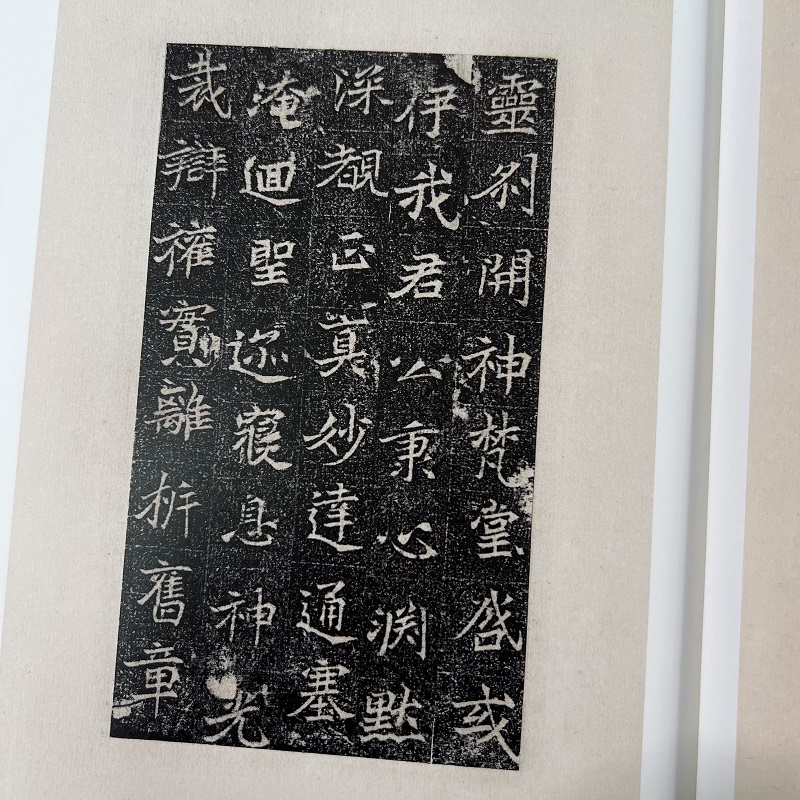 靈刹開神梵堂啓或
伊我君公秉心渕默
深覩正真妙達通塞
淹迴聖迩寢息神光
裁辯權實離析舊章